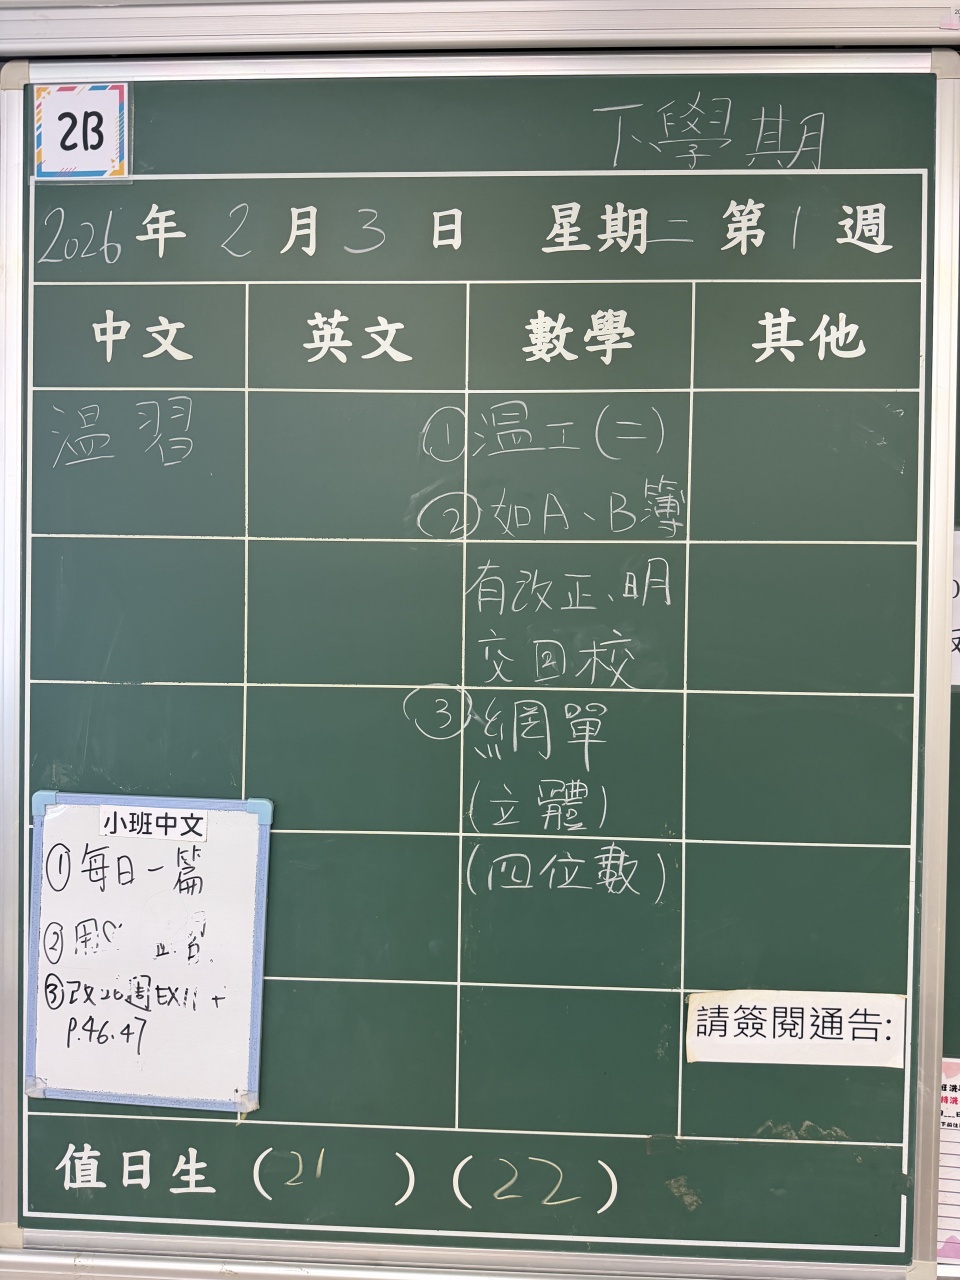 2B
下學期
2026年 2月 3日 星期二 第1週
中文 英文 數學 其他
溫習
① 溫工(二)
② 如A、B簿
有改正、明
交回校
③ 網單
(立體)
(四位數)
小班中文
① 每日一篇
②
③ 改 周 EX11 +
P.46.47
請簽閱通告:
值日生 (21) (22)